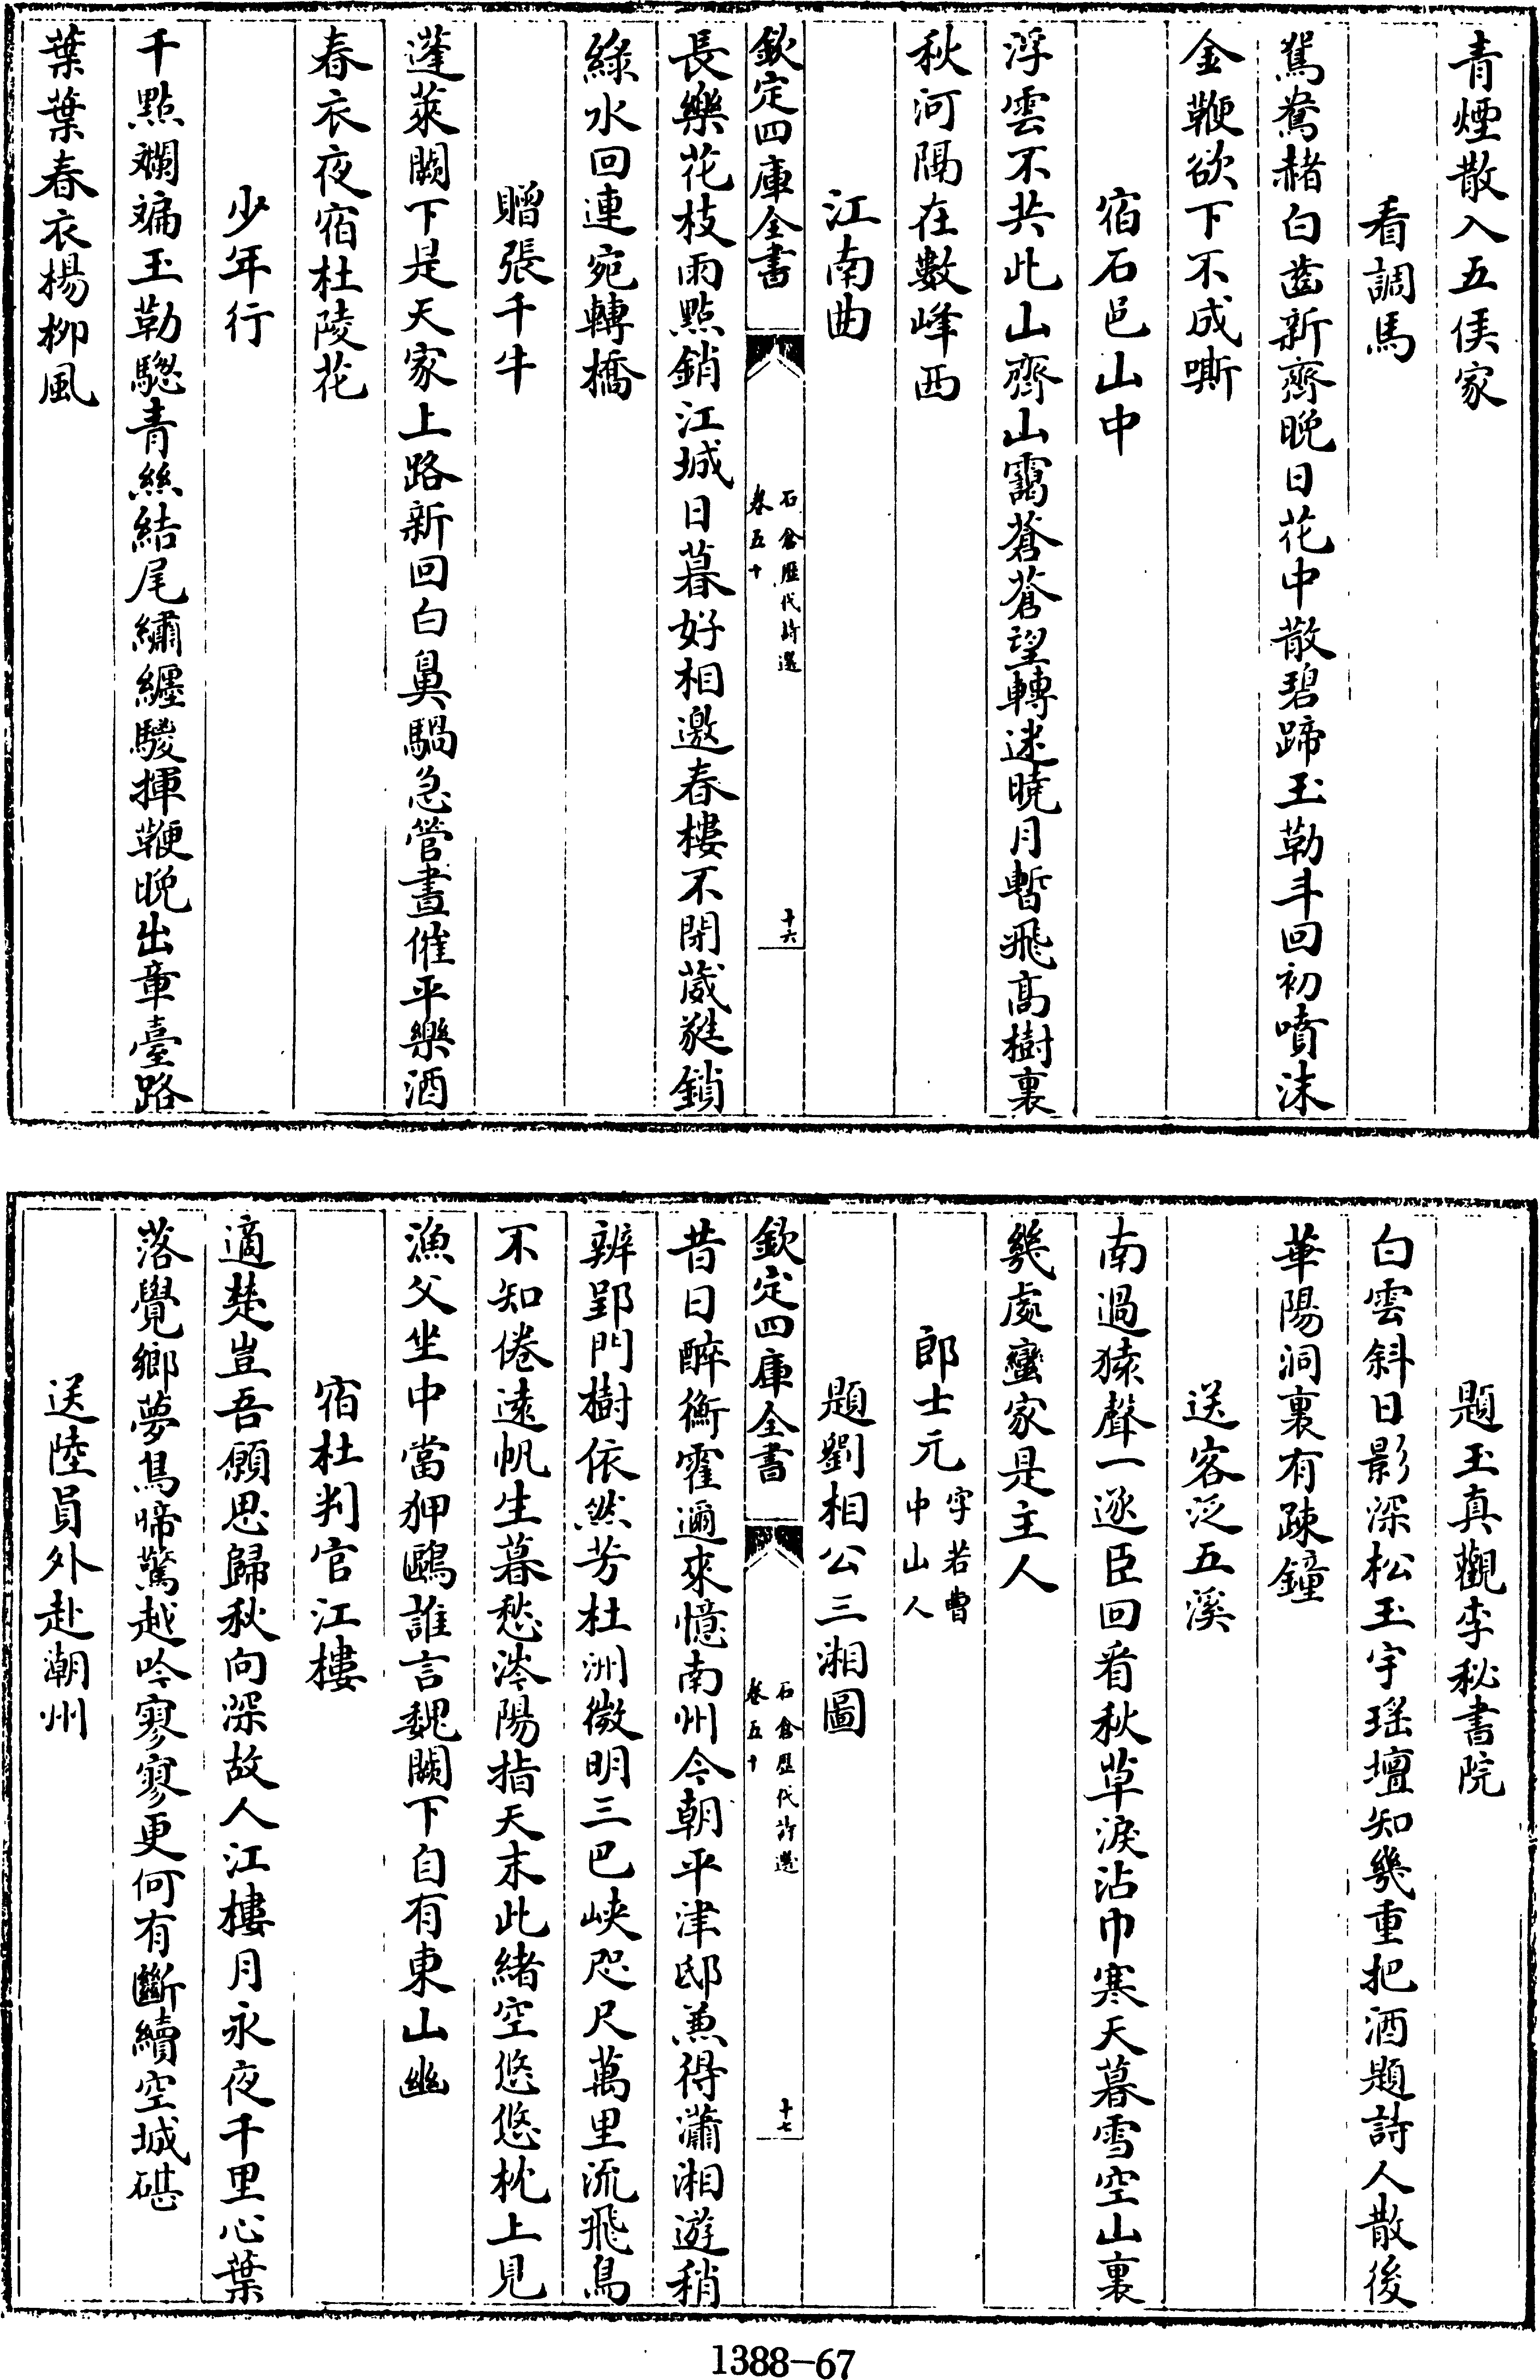 青煙散入五侯家
看調馬
鴛鴦赭白齒新齊晚日花中散碧蹄玉勒斗回初噴沫
金鞭欲下不成嘶
宿石邑山中
浮雲不共此山齊山靄蒼蒼望轉迷曉月暫飛高樹裏
秋河隔在數峰西
江南曲
欽定四庫全書
石倉歷代詩選
卷五十
十六
長樂花枝雨點銷江城日暮好相邀春樓不閉葳蕤鎖
綠水回連宛轉橋
贈張千牛
蓬萊闕下是天家上路新回白鼻騧急管晝催平樂酒
春衣夜宿杜陵花
少年行
千點斕斒玉勒驄青絲結尾繡纏騣揮鞭晚出章臺路
葉葉春衣楊柳風
題玉真觀李秘書院
白雲斜日影深松玉宇瑤壇知幾重把酒題詩人散後
華陽洞裏有疎鐘
送客泛五溪
南過猿聲一逐臣回看秋草淚沾巾寒天暮雪空山裏
幾處蠻家是主人
郎士元字若曹
中山人
題劉相公三湘圖
欽定四庫全書
石倉歷代詩選
卷五十
十七
昔日醉衡霍邇來憶南州今朝平津邸兼得瀟湘遊稍
辨郢門樹依然芳杜洲微明三巴峽咫尺萬里流飛鳥
不知倦遠帆生暮愁涔陽指天末此緒空悠悠枕上見
漁父坐中當狎鷗誰言魏闕下自有東山幽
宿杜判官江樓
適楚豈吾願思歸秋向深故人江樓月永夜千里心葉
落覺鄉夢鳥啼驚越吟寥寥更何有斷續空城碪
送陸員外赴潮州
1388-67